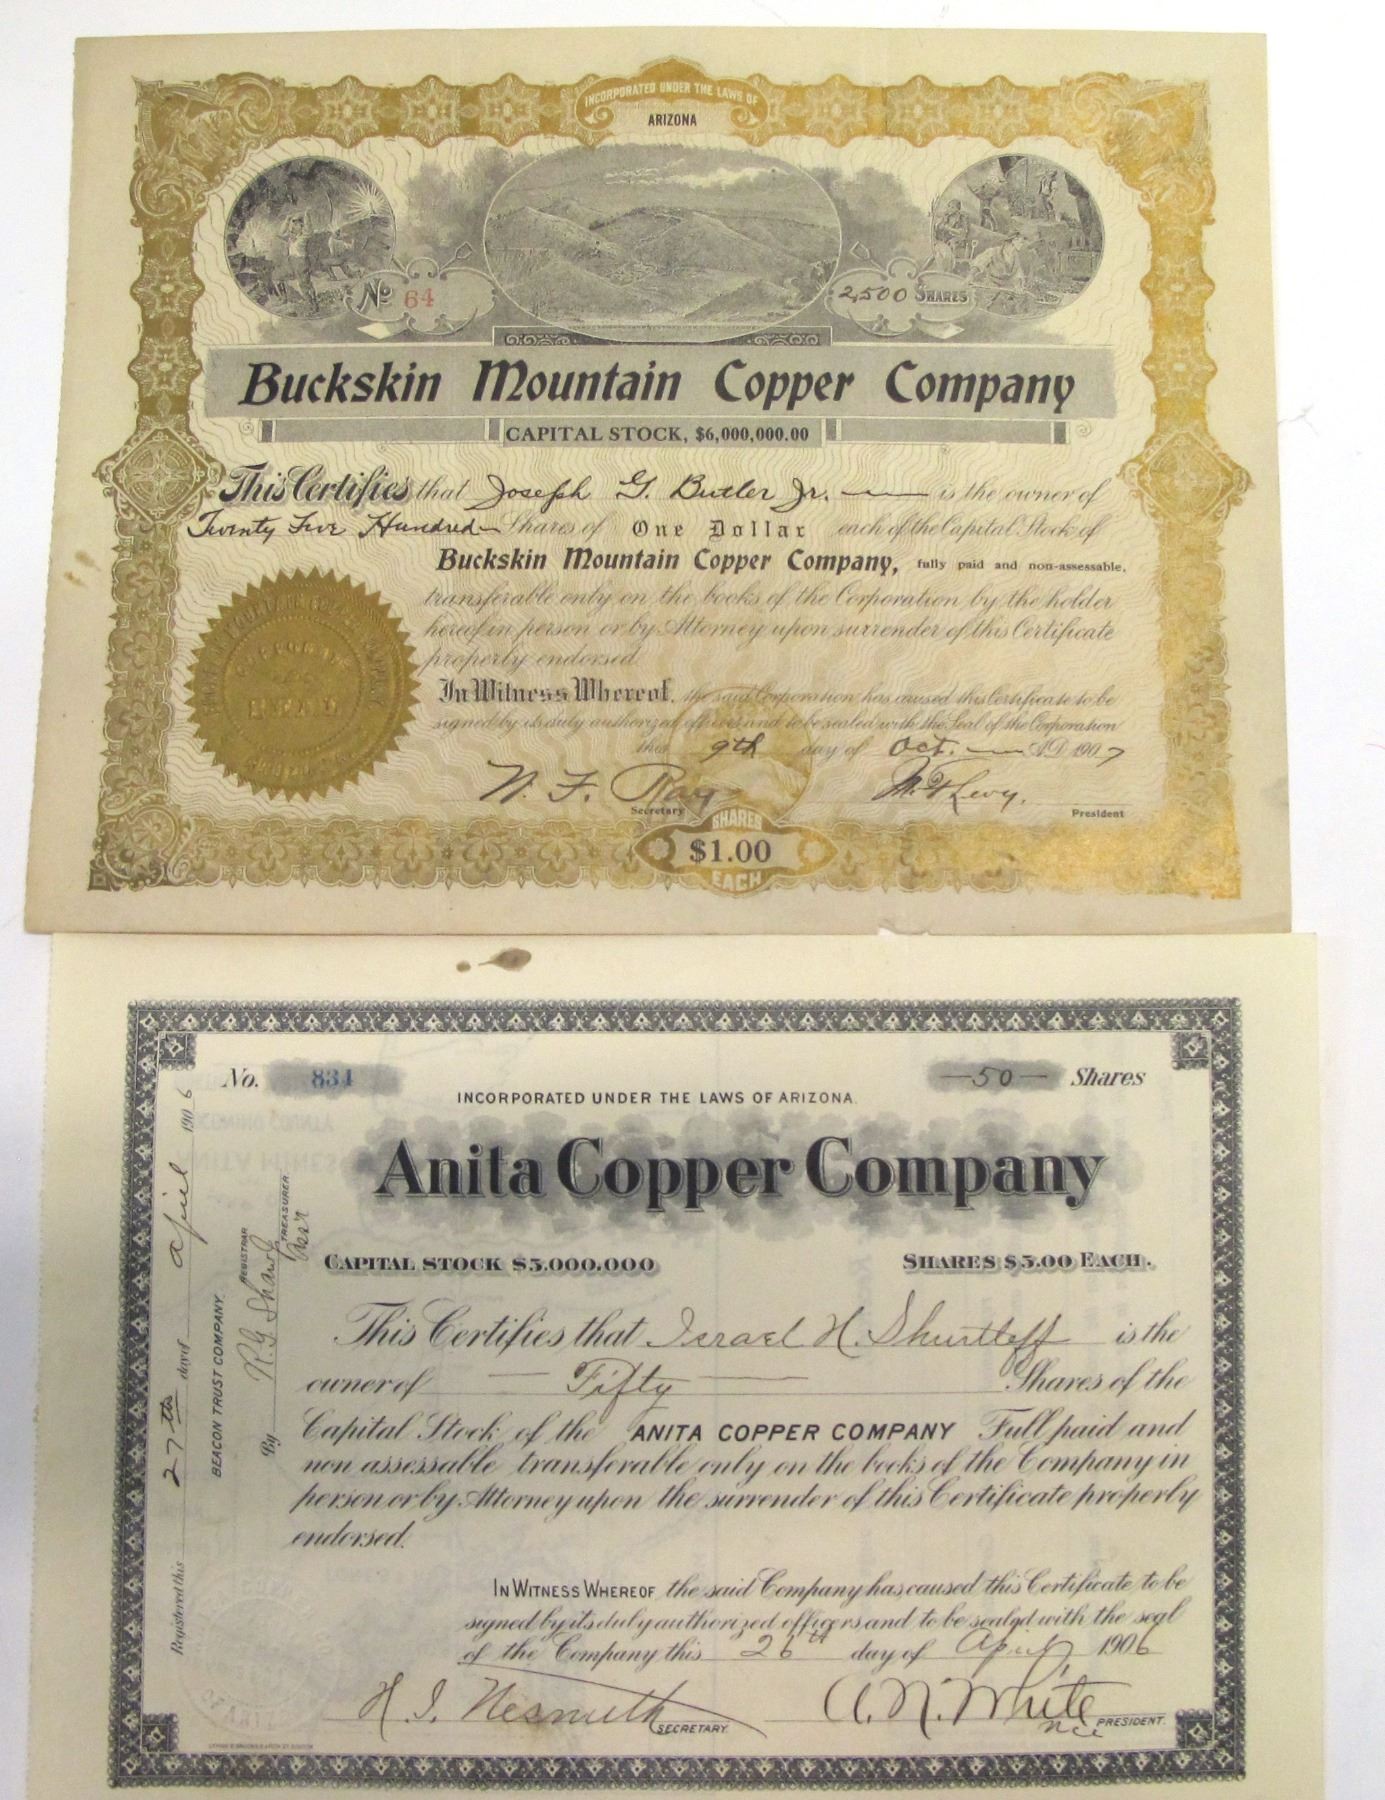 INCORPORATED UNDER THE LAWS OF
ARIZONA
No 64
2,500 SHARES
Buckskin Mountain Copper Company
CAPITAL STOCK, $6,000,000.00
This Certifies that Joseph G. Butler Jr. is the owner of
Twenty Five Hundred Shares of One Dollar each of the Capital Stock of
Buckskin Mountain Copper Company, fully paid and non-assessable,
transferable only on the books of the Corporation by the holder
hereof in person or by Attorney upon surrender of this Certificate
properly endorsed
In Witness Whereof, the said Corporation has caused this Certificate to be
signed by its duly authorized officers and to be sealed with the Seal of the Corporation
this 9th day of Oct. A.D. 1907
W. F. Ray
Secretary
Levy.
President
SHARES
$1.00
EACH
No. 834
—50— Shares
INCORPORATED UNDER THE LAWS OF ARIZONA.
Anita Copper Company
CAPITAL STOCK $5.000.000
SHARES $5.00 EACH.
This Certifies that Israel H. Shurtleff is the
owner of — Fifty — Shares of the
Capital Stock of the ANITA COPPER COMPANY Full paid and
non assessable transferable only on the books of the Company in
person or by Attorney upon the surrender of this Certificate properly
endorsed.
IN WITNESS WHEREOF the said Company has caused this Certificate to be
signed by its duly authorized officers and to be sealed with the seal
of the Company this 26th day of April, 1906
H. I. Nesmuth
SECRETARY.
A. N. White
Vice PRESIDENT.
Registered this 27th day of April 1906
BEACON TRUST COMPANY.
REGISTRAR
By R. G. Shaw Jr
Ass't TREASURER